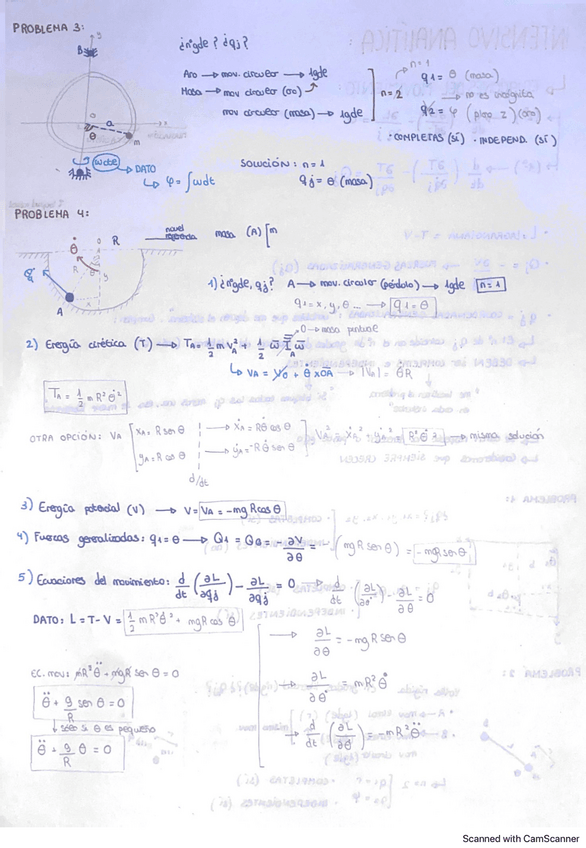 PROBLEMA 3:
¿nºgde? ¿qj?
Aro → mov. circular → 1gde
Masa → mov circular (aro)
mov circular (masa) → 1gde
n=2
n=1
q1 = θ (masa)
→ no es incógnita
q2 = φ (aro)
· COMPLETAS (SÍ) · INDEPEND. (SÍ)
B
z
a
θ
m
ω cte → DATO
↳ φ = ∫ωdt
SOLUCIÓN: n=1
qj = θ (masa)
PROBLEMA 4:
R
nivel referencia
masa (A) [m
θ
R
y
x
A
1) ¿nºgde, qj? A → mov. circular (péndulo) → 1gde n=1
q1 = x, y, θ ... → q1 = θ
0 → masa puntual
2) Energía cinética (T) → TA = 1/2 m vA² + 1/2 ω̄ I̿A ω̄
↳ vA = v0 + θ̇ x OA → |vA| = θ̇R
TA = 1/2 m R² θ̇²
OTRA OPCIÓN: VA
xA = R sen θ → ẋA = Rθ̇ cos θ
yA = R cos θ → ẏA = -Rθ̇ sen θ
d/dt
VA² = ẋA² + ẏA² = R²θ̇² → misma solución
3) Energía potencial (V) → V = VA = -mg R cos θ
4) Fuerzas generalizadas: q1 = θ → Q1 = Qθ = -∂V/∂θ = -(mg R sen θ) = -mg R sen θ
5) Ecuaciones del movimiento: d/dt (∂L/∂q̇j) - ∂L/∂qj = 0 → d/dt (∂L/∂θ̇) - ∂L/∂θ = 0
DATO: L = T - V = 1/2 mR²θ̇² + mg R cos θ
→ ∂L/∂θ = -mg R sen θ
→ ∂L/∂θ̇ = mR²θ̇
→ d/dt (∂L/∂θ̇) = mR²θ̈
EC. mov: mR²θ̈ + mgR sen θ = 0
θ̈ + g/R sen θ = 0
↓ sólo si θ es pequeño
θ̈ + g/R θ = 0
Scanned with CamScanner